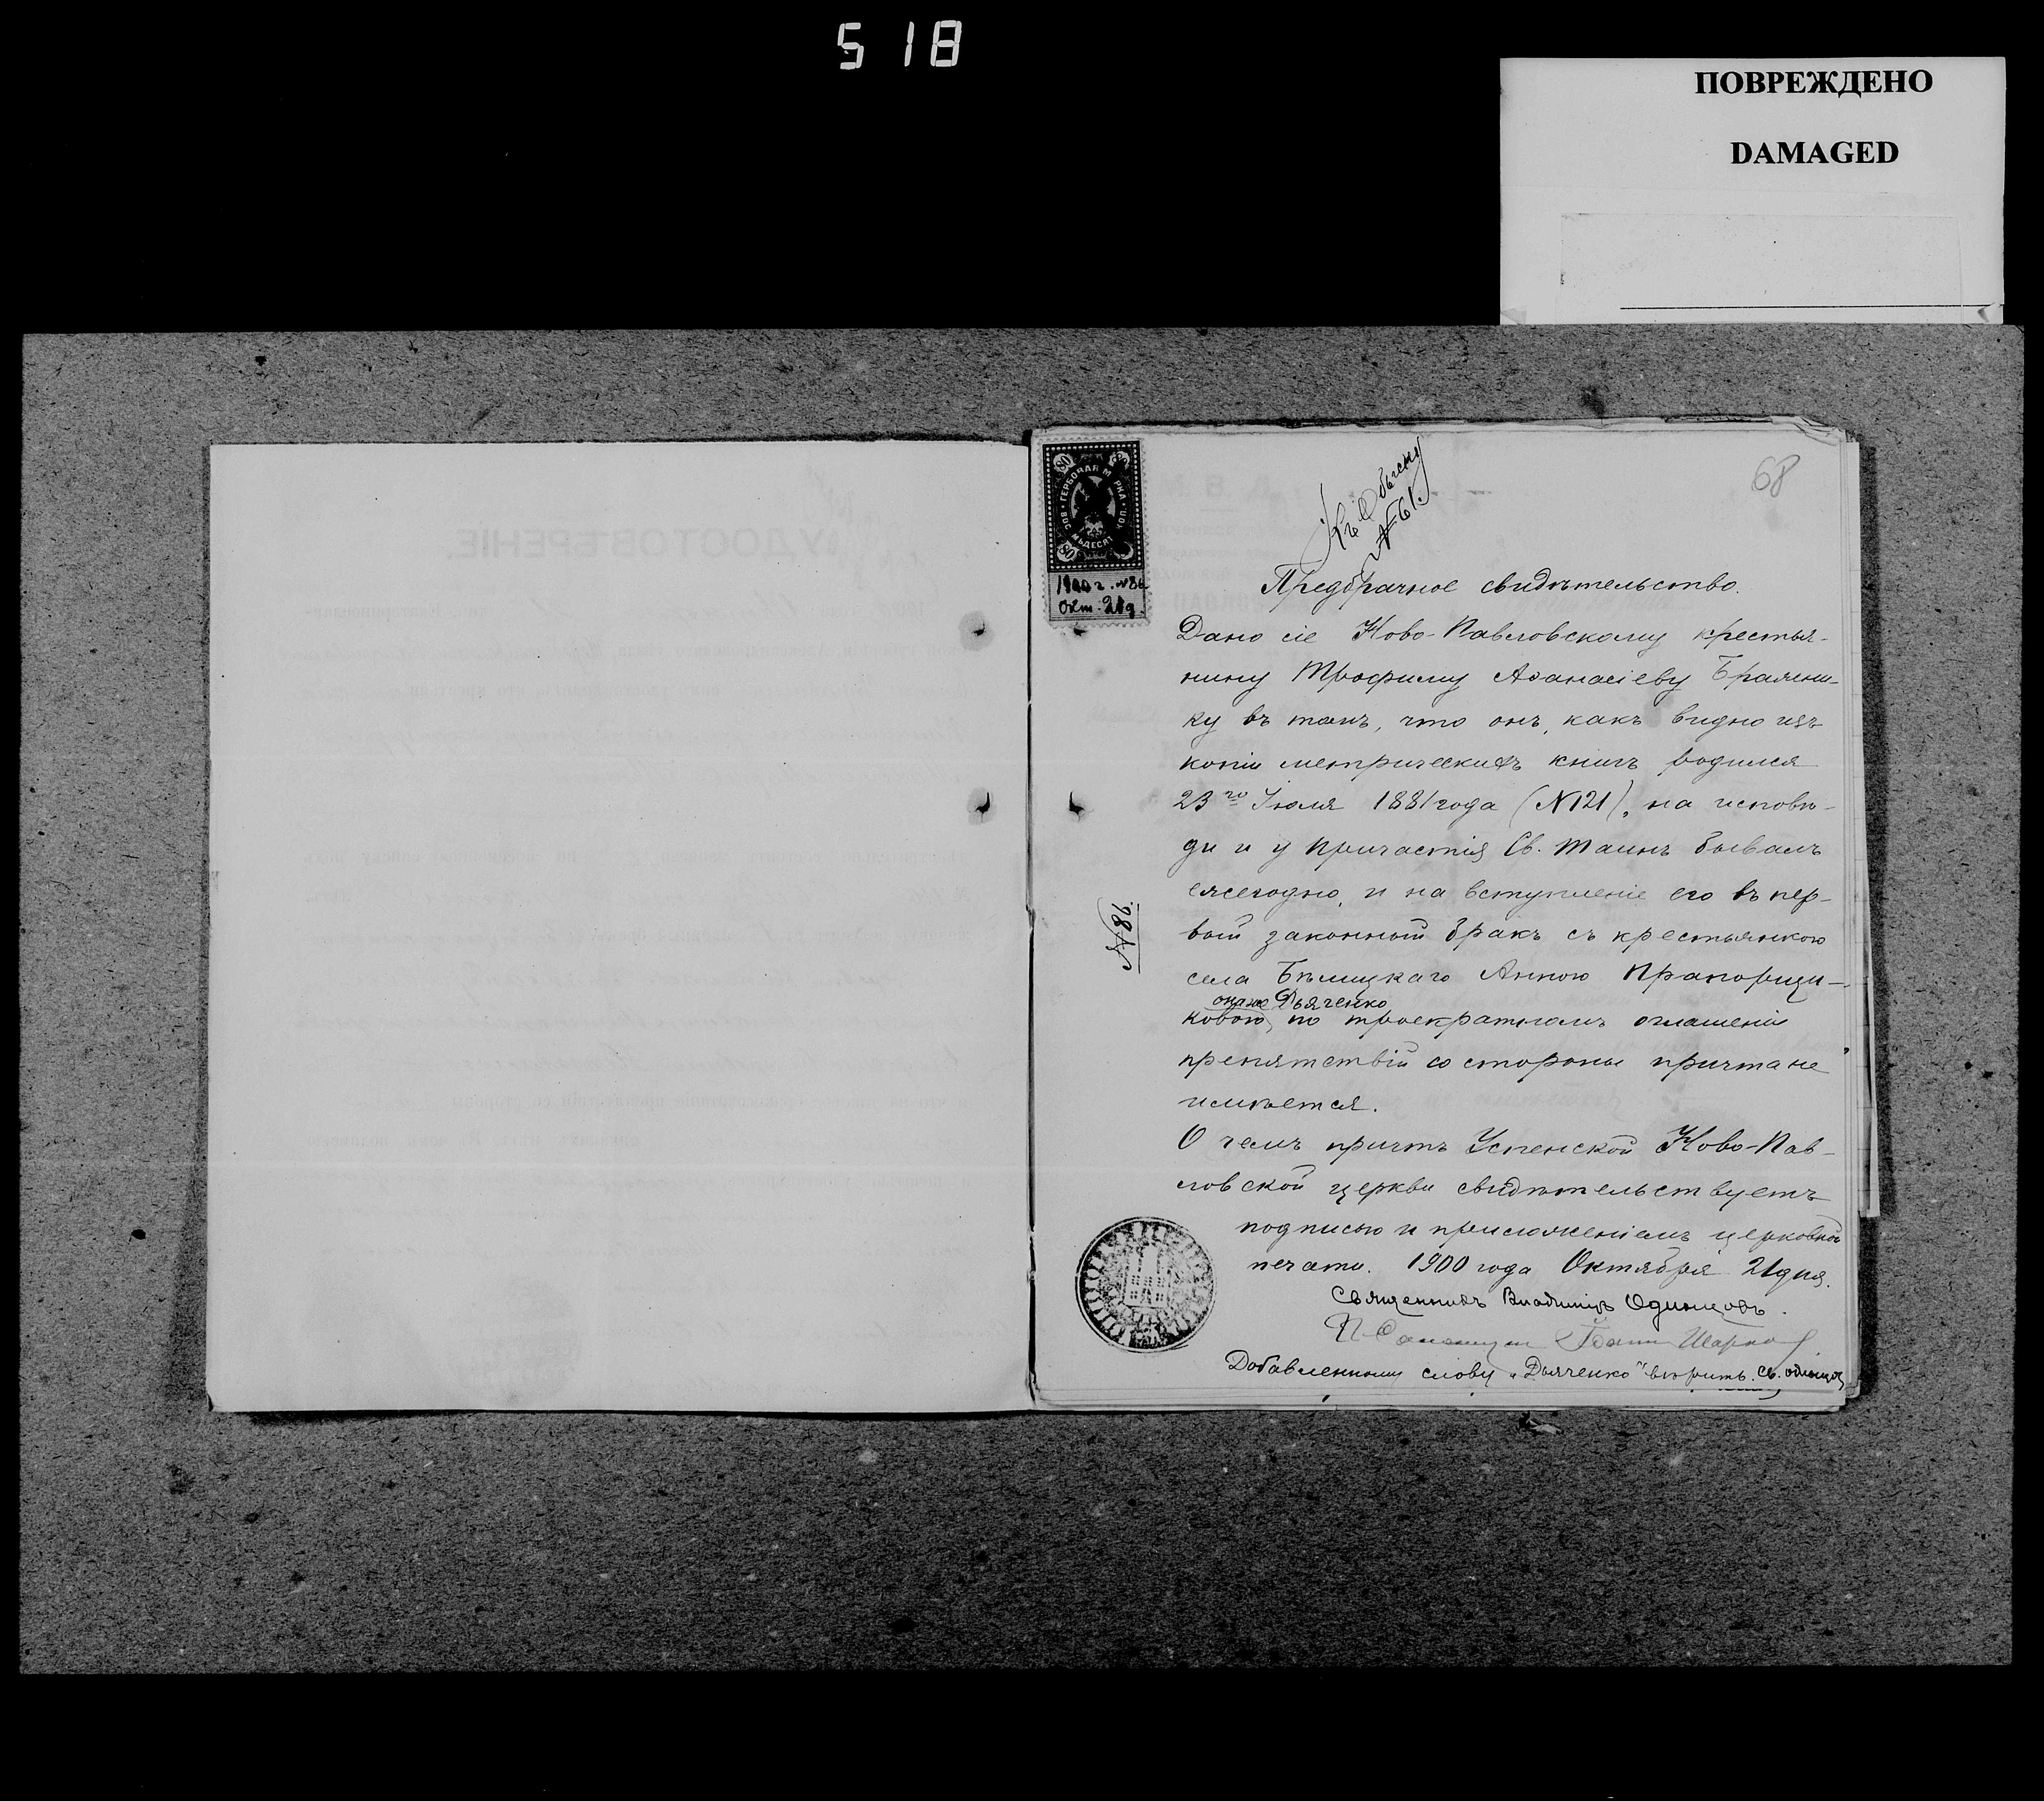 518
ПОВРЕЖДЕНО
DAMAGED
68
Къ Обыску
№ 61.
ГЕРБОВАЯ МАРКА
80
1900 г. №86
Окт. 21 д.
Предбрачное свидѣтельство.
Дано сіе Ново-Павловскому крестья-
нину Трофиму Аѳанасіеву Бражни-
ку въ томъ, что онъ, какъ видно изъ
копіи метрическихъ книгъ родился
23го Іюля 1881 года (№121), на исповѣ-
ди и у Причастія Св. Таинъ бывалъ
ежегодно, и на вступленіе его въ пер-
вый законный бракъ съ крестьянкою
села Бѣлицкаго Анною Прапорщи-
она же Дьяченко
ковою, по троекратномъ оглашеніи
препятствій со стороны причта не
имѣется.
О чемъ причтъ Успенской Ново-Пав-
ловской церкви свидѣтельствуетъ
подписью и приложеніемъ церковной
печати. 1900 года Октября 21 дня.
Священникъ Владиміръ Одинцовъ.
Добавленному слову „Дьяченко" вѣрить. Св. Одинцовъ
№ 86.
УДОСТОВѢРЕНІЕ.